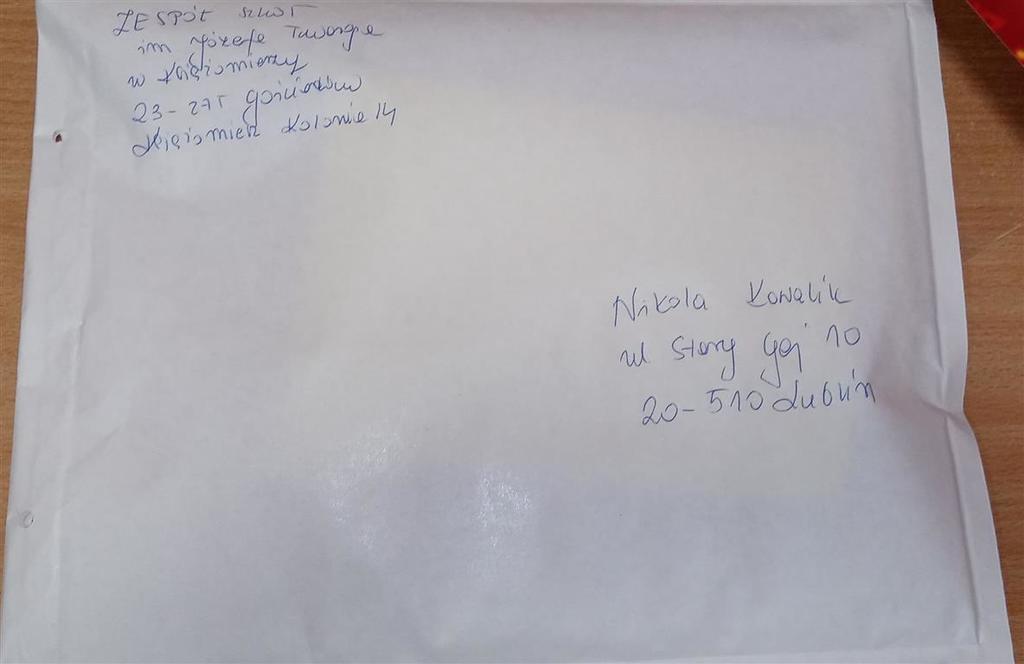 ZESPÓŁ SZKÓŁ
im Józefa Twaroga
w Księżomierzy
23-275 Gościeradów
Księżomierz Kolonia 14
Nikola Kowalik
ul Stary Gaj 10
20-510 Lublin